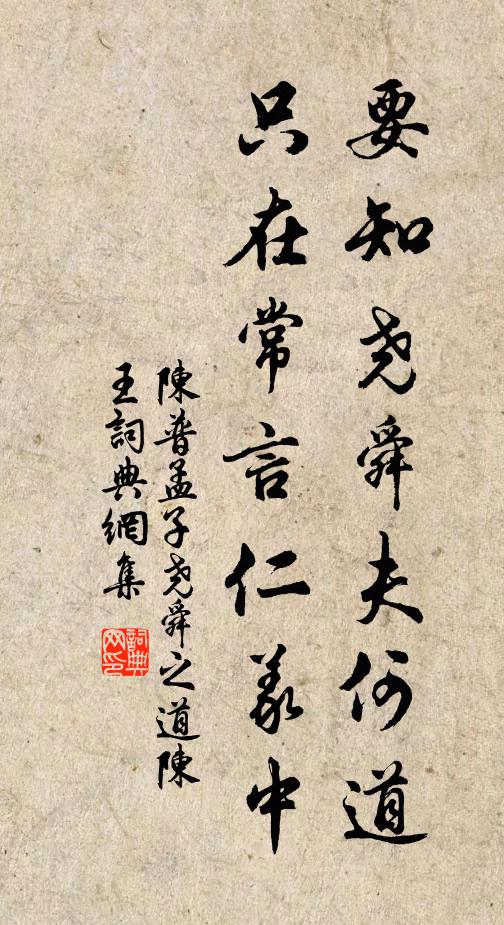 要知尧舜夫何道
只在常言仁义中
陳普孟子尧舜之道陳
王詞典網集
詞典
网印